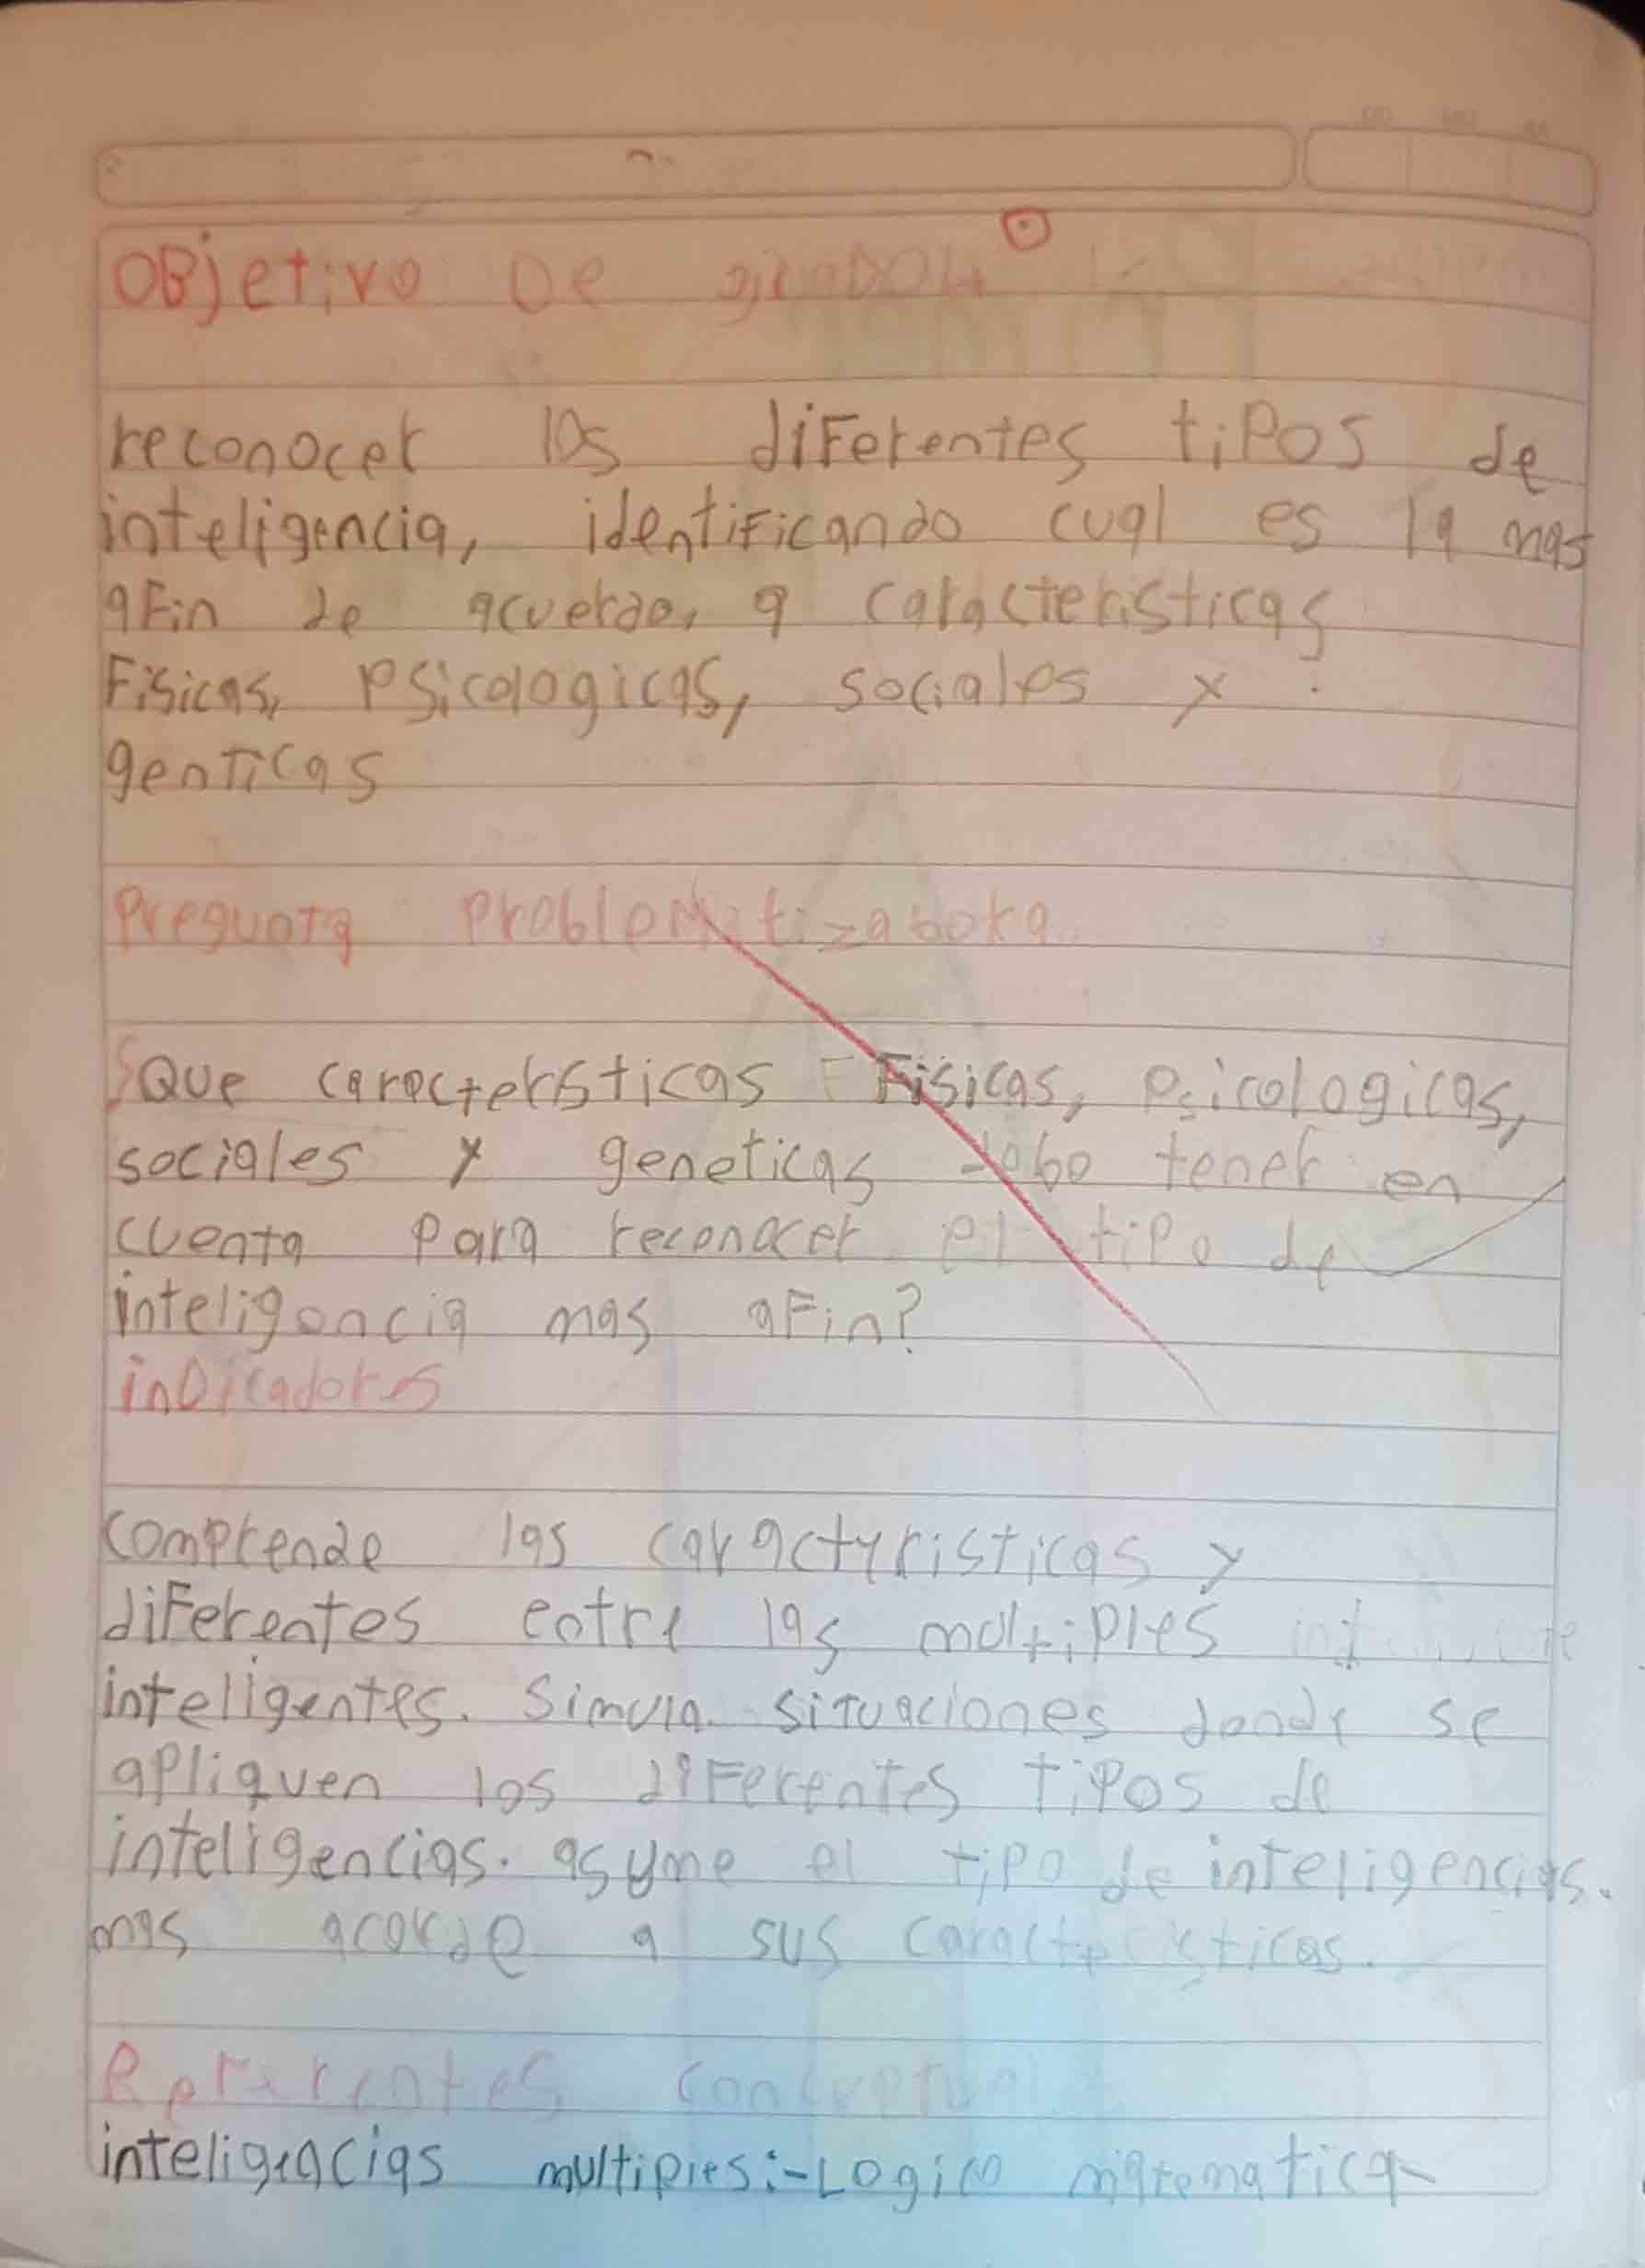 OBjetivo De
reconocer los diferentes tipos de
inteligencia, identificando cual es la mas
afin de acuerdo, a caracteristicas
Fisicas, psicologicas, sociales y :
genticas
Pregunta Problematizadora
Que caracteristicas Fisicas, Psicologicas,
sociales y geneticas debo tener en
cuenta para reconocer el tipo de
inteligencia mas afin?
inDicadores
comprende las caractyristicas y
diferentes entre las multiples
inteligentes. Simula situaciones donde se
apliquen los diferentes tipos de
inteligencias. asyme el tipo de inteligencias.
mas acorde a sus caracteristicas.
Referentes conceptual
inteligencias multiples:-Logico matematica-